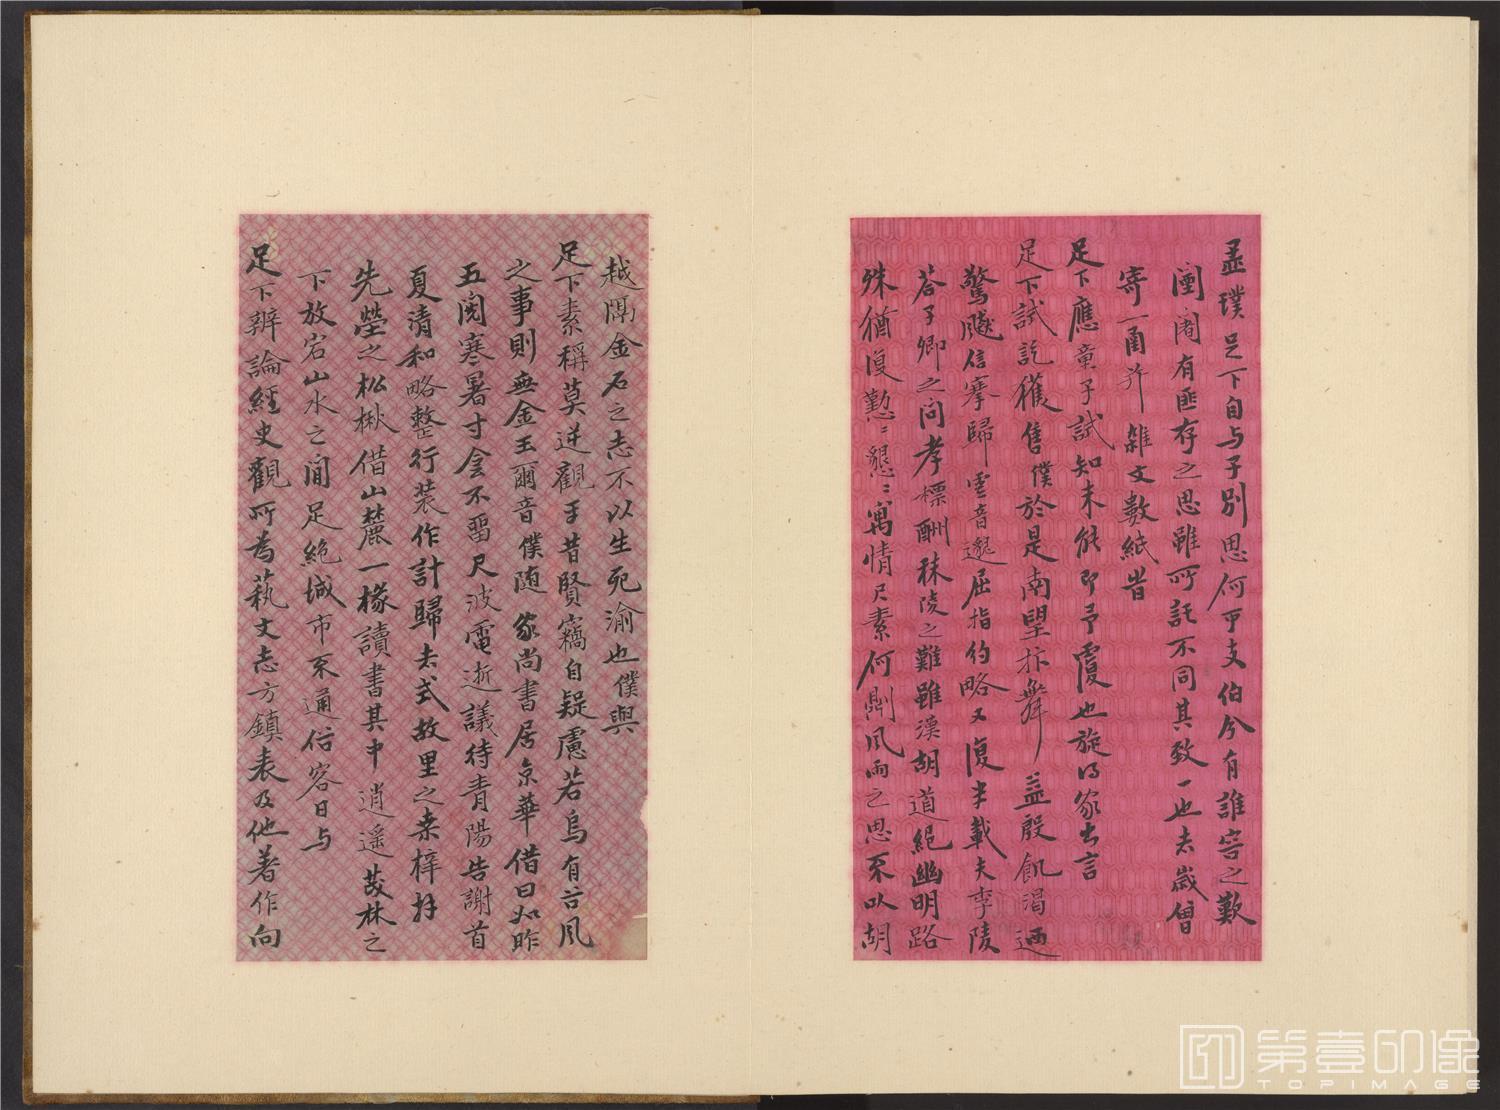 孟璞足下自与子別思何可支伯兮有誰啻之歎
闉闍有匪存之思雖所託不同其致一也去歲曾
寄一函并雜文數紙昔
足下應童子試知未能即予虔也旋得家書言
足下試訖獲售僕於是南望抃舞益殷飢渴迺
驚颷信搴歸雲音邈屈指約略又復半載夫李陵
荅子卿之問孝標酬秣陵之難雖漢胡道絕幽明路
殊猶復懃〻懇〻寓情尺素何則風雨之思不以胡
越隔金石之志不以生死渝也僕與
足下素稱莫逆觀乎昔賢竊自疑慮若烏有苔風
之事則無金玉爾音僕随家尚書居京華借曰如昨
五閱寒暑寸會不畱尺波電逝議待青陽告謝首
夏清和略整行裝作計歸去式故里之桒梓拜
先塋之松楸借山麓一椽讀書其中逍遥茂林之
下放宕山水之間足絕城市不通俗客日与
足下辨論經史觀所為蓺文志方鎮表及他著作向
第壹印像
TOPIMAGE